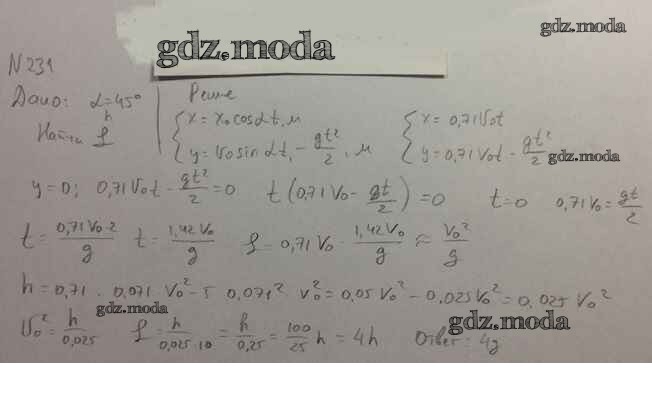 gdz.moda
gdz.moda
N 231
Дано: α=45°
h
Найти ℓ
Реше
{ x = x₀cosαt, м
y = v₀sinαt - gt²/2, м
{ x = 0,71v₀t
y = 0,71v₀t - gt²/2
gdz.moda
y = 0; 0,71v₀t - gt²/2 = 0 t (0,71v₀ - gt/2) = 0 t = 0 0,71v₀ = gt/2
t = 0,71v₀·2/g t = 1,42v₀/g ℓ = 0,71v₀ · 1,42v₀/g ≈ v₀²/g
h = 0,71 · 0,071 v₀² - 5 0,071² v₀² = 0,05v₀² - 0,025v₀² = 0,025v₀²
gdz.moda
v₀² = h/0,025 ℓ = h/0,025·10 = h/0,25 = 100/25 h = 4h Ответ: 4g
gdz.moda